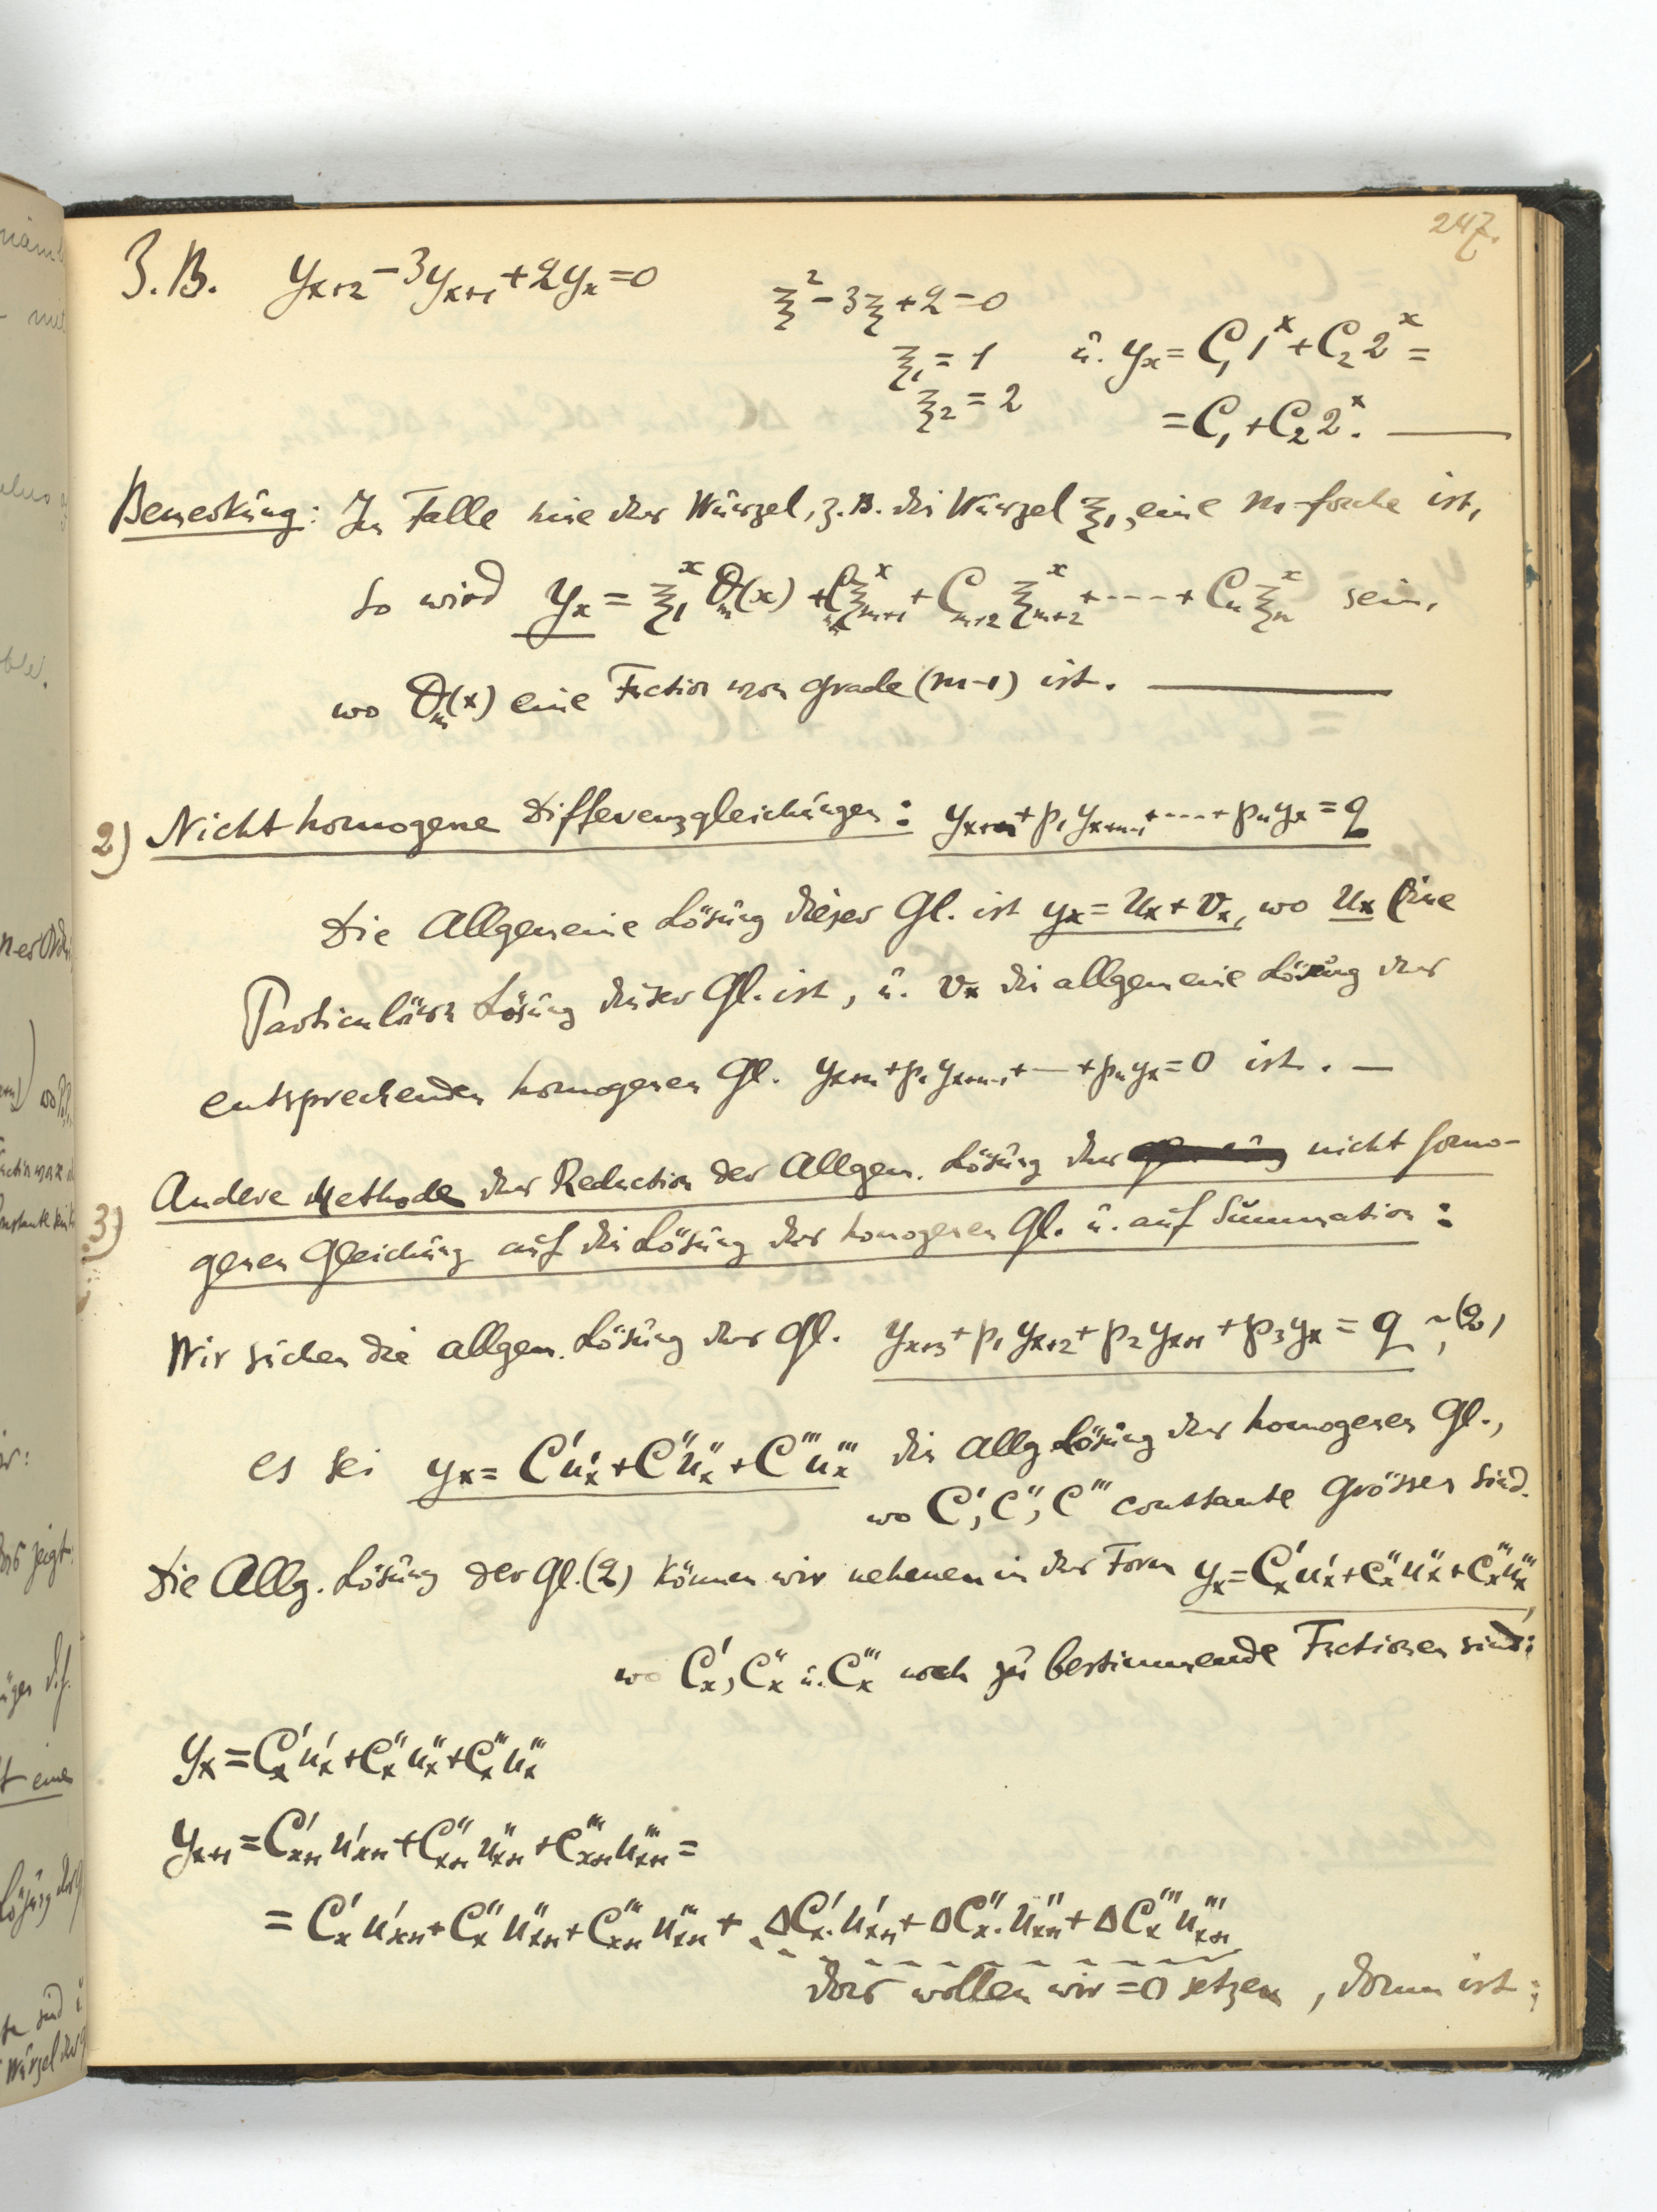 247.
Z.B. y_{x+2} - 3y_{x+1} + 2y_x = 0
ξ² - 3ξ + 2 = 0
ξ_1 = 1 u. y_x = C_1 1^x + C_2 2^x =
ξ_2 = 2 = C_1 + C_2 2^x. —
Bemerkung: Im Falle eine der Wurzel, z.B. die Wurzel ξ_1, eine m-fache ist,
so wird y_x = ξ_1^x ϑ_m(x) + C_{m+1} ξ_{m+1}^x + C_{m+2} ξ_{m+2}^x + ---- + C_n ξ_n^x sein,
wo ϑ_m(x) eine Fnction vom grade (m-1) ist. —
2) Nicht homogene Differenzgleichungen: y_{x+n} + p_1 y_{x+n-1} + ---- + p_n y_x = q
Die Allgemeine Lösung dieser Gl. ist y_x = u_x + v_x, wo u_x eine
Particuläre Lösung dieser Gl. ist, u. v_x die allgemeine Lösung der
entsprechenden homogenen Gl. y_{x+n} + p_1 y_{x+n-1} + --- + p_n y_x = 0 ist. —
3) Andere Methode der Reduction der Allgem. Lösung der nicht homo-
genen Gleichung auf die Lösung der homogenen Gl. u. auf Summation:
Wir suchen die allgem. Lösung der Gl. y_{x+3} + p_1 y_{x+2} + p_2 y_{x+1} + p_3 y_x = q ~ (2),
es sei y_x = C' u'_x + C'' u''_x + C''' u'''_x die allg Lösung der homogenen Gl.,
wo C', C'', C''' constante Grössen sind.
Die Allg. Lösung der Gl. (2) können wir nehmen in der Form y_x = C'_x u'_x + C''_x u''_x + C'''_x u'''_x,
wo C'_x, C''_x u. C'''_x noch zu bestimmende Fnctionen sind:
y_x = C'_x u'_x + C''_x u''_x + C'''_x u'''_x
y_{x+1} = C'_{x+1} u'_{x+1} + C''_{x+1} u''_{x+1} + C'''_{x+1} u'''_{x+1} =
= C'_x u'_{x+1} + C''_x u''_{x+1} + C'''_{x+1} u'''_{x+1} + ΔC'_x . u'_{x+1} + ΔC''_x . u''_{x+1} + ΔC'''_x u'''_{x+1}
das wollen wir = 0 setzen, dann ist: